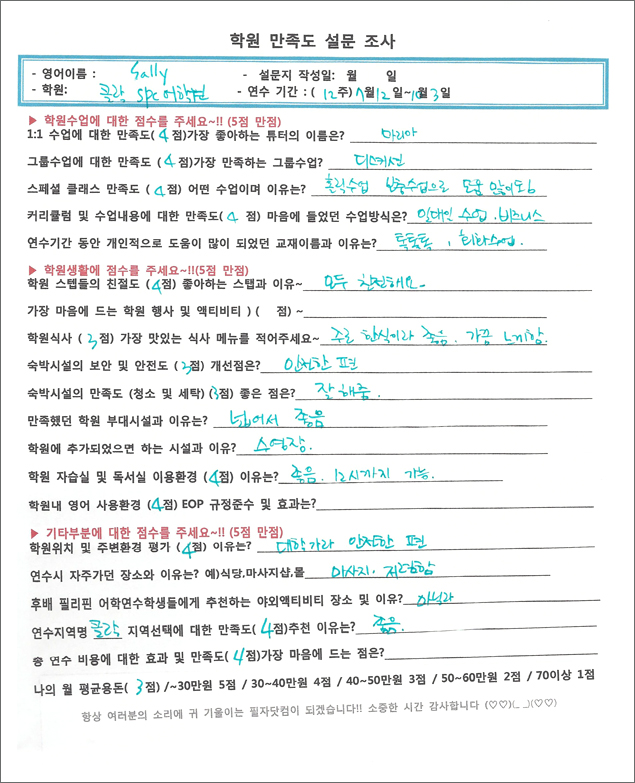 학원 만족도 설문 조사
- 영어이름 : Sally - 설문지 작성일: 월 일
- 학원: 클락 SPC 어학원 - 연수 기간 : ( 12주) 7월 12일~10월 3일
▶ 학원수업에 대한 점수를 주세요~!! (5점 만점)
1:1 수업에 대한 만족도( 4 점)가장 좋아하는 튜터의 이름은? 마리아
그룹수업에 대한 만족도 ( 4점)가장 만족하는 그룹수업? 디스커션
스페셜 클래스 만족도 ( 4점) 어떤 수업이며 이유는? 보충수업으로 도움 많이됨
커리큘럼 및 수업내용에 대한 만족도( 4 점) 마음에 들었던 수업방식은? 일대일 수업, 비즈니스
연수기간 동안 개인적으로 도움이 많이 되었던 교재이름과 이유는? 톡톡톡, 회화수업.
▶ 학원생활에 점수를 주세요~!!(5점 만점)
학원 스텝들의 친절도 ( 4점) 좋아하는 스탭과 이유~ 모두 친절해요~
가장 마음에 드는 학원 행사 및 액티비티 ) ( 점) ~
학원식사 ( 3점) 가장 맛있는 식사 메뉴를 적어주세요~ 주로 한식이라 좋음. 가끔 느끼함.
숙박시설의 보안 및 안전도 ( 3점) 개선점은? 안전한 편
숙박시설의 만족도 (청소 및 세탁) (3점) 좋은 점은? 잘해줌.
만족했던 학원 부대시설과 이유는? 넓어서 좋음
학원에 추가되었으면 하는 시설과 이유? 수영장.
학원 자습실 및 독서실 이용환경 (4점) 이유는? 좋음. 12시까지 가능.
학원내 영어 사용환경 (4점) EOP 규정준수 및 효과는?
▶ 기타부분에 대한 점수를 주세요~!! (5점 만점)
학원위치 및 주변환경 평가 (4점) 이유는? 대학가라 안전한 편
연수시 자주가던 장소와 이유는? 예)식당,마사지샵,몰 마사지. 저렴함
후배 필리핀 어학연수학생들에게 추천하는 야외액티비티 장소 및 이유? 마닐라
연수지역명 클락 지역선택에 대한 만족도( 4점)추천 이유는? 좋음.
총 연수 비용에 대한 효과 및 만족도( 4점)가장 마음에 드는 점은?
나의 월 평균용돈( 3점) /~30만원 5점 / 30~40만원 4점 / 40~50만원 3점 / 50~60만원 2점 / 70이상 1점
항상 여러분의 소리에 귀 기울이는 필자닷컴이 되겠습니다!! 소중한 시간 감사합니다 (♡♡)(_ _)(♡♡)